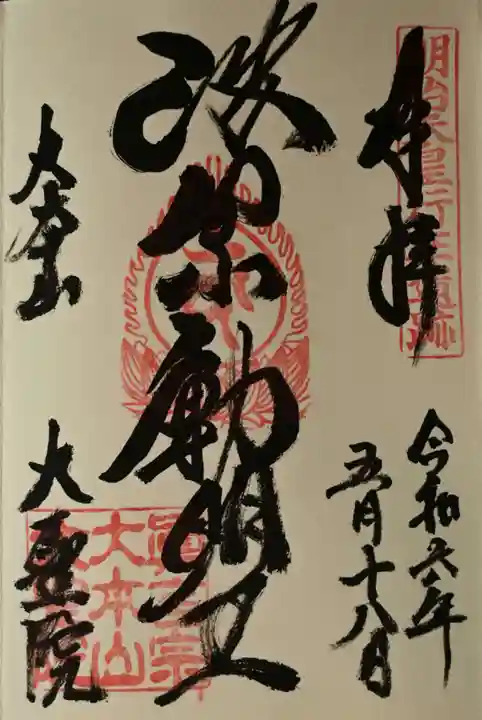 明治天皇行在所遺跡
奉拝
令和六年
五月十八日
波切不動明王
大本山
大聖院
真言宗
大本山